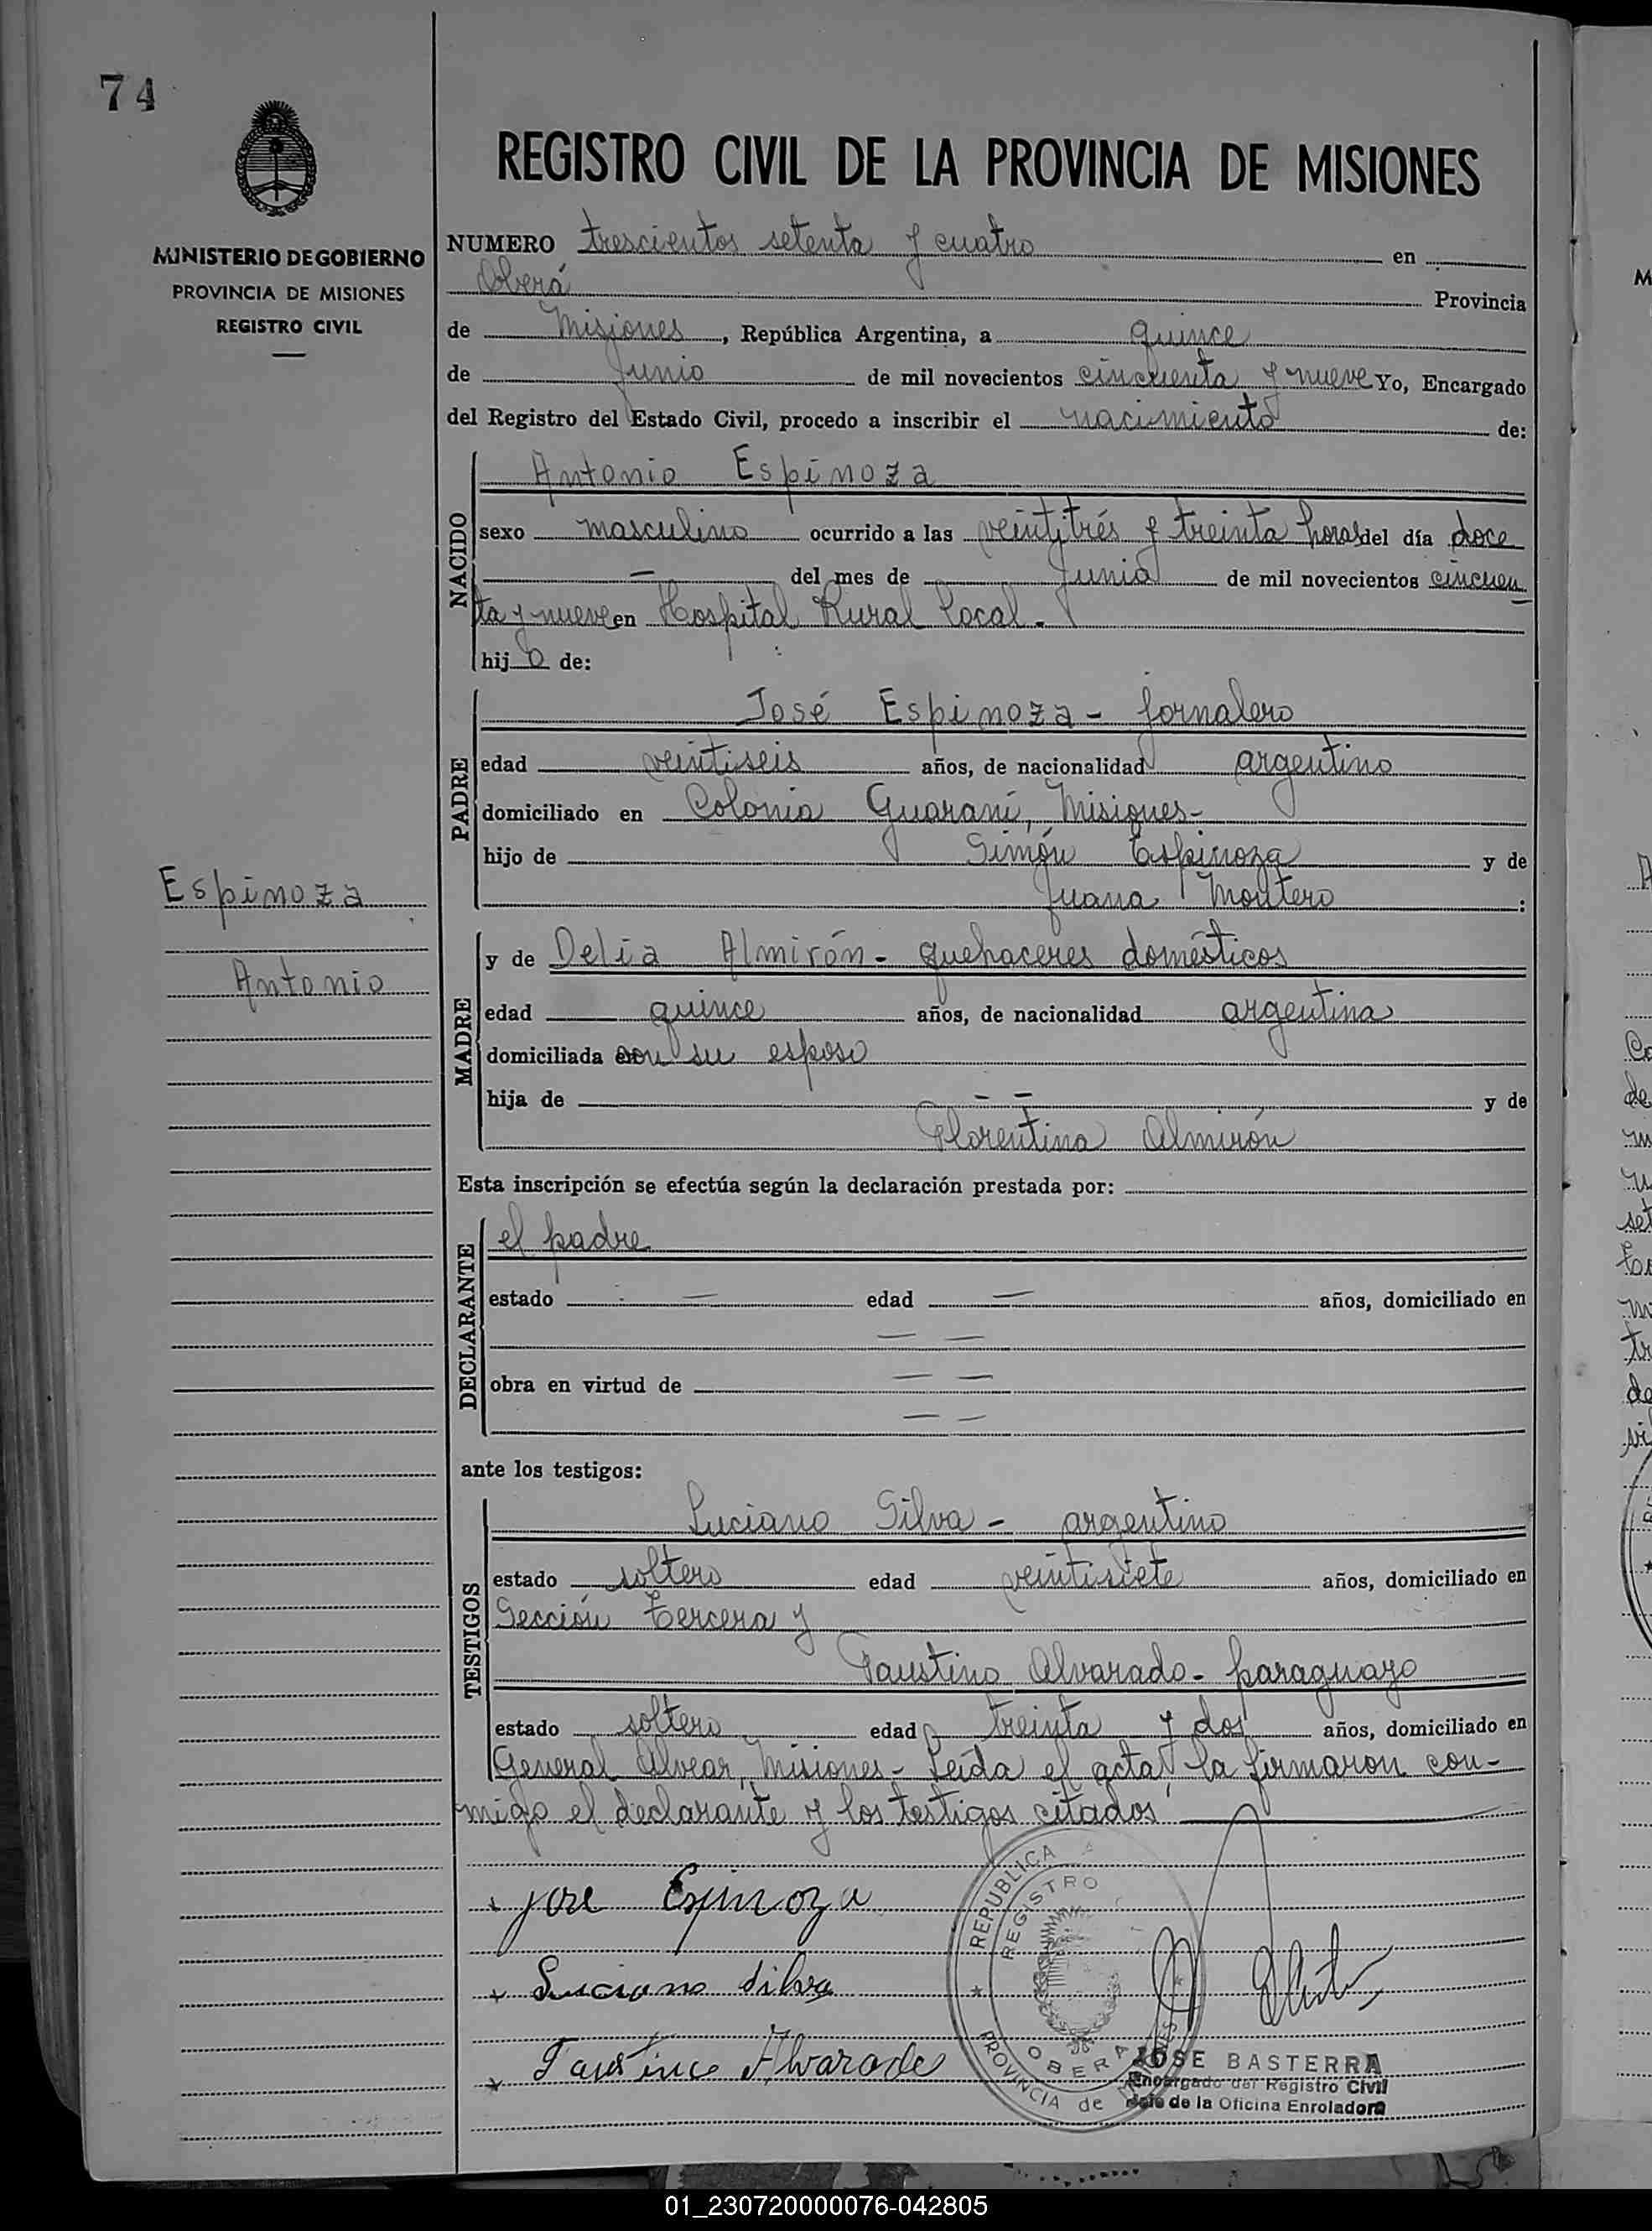 74
MINISTERIO DE GOBIERNO
PROVINCIA DE MISIONES
REGISTRO CIVIL
Espinoza
Antonio
REGISTRO CIVIL DE LA PROVINCIA DE MISIONES
NUMERO trescientos setenta y cuatro en
Oberá Provincia
de Misiones, República Argentina, a quince
de Junio de mil novecientos cincuenta y nueve Yo, Encargado
del Registro del Estado Civil, procedo a inscribir el nacimiento de:
NACIDO
Antonio Espinoza
sexo masculino ocurrido a las veintitrés y treinta horas del día doce
— del mes de Junio de mil novecientos cincuen
ta y nueve en Hospital Rural local.
hijo de:
PADRE
José Espinoza - jornalero
edad veintiseis años, de nacionalidad argentino
domiciliado en Colonia Guaraní, Misiones-
hijo de Simón Espinoza y de
Juana Montero :
MADRE
y de Delia Almirón - quehaceres domésticos
edad quince años, de nacionalidad argentina
domiciliada con su esposo
hija de — — y de
Florentina Almirón
Esta inscripción se efectúa según la declaración prestada por:
DECLARANTE
el padre
estado — edad — años, domiciliado en
— —
obra en virtud de — —
— —
ante los testigos:
TESTIGOS
Luciano Silva - argentino
estado soltero edad veintisiete años, domiciliado en
Sección tercera y
Faustino Alvarado - paraguayo
estado soltero edad treinta y dos años, domiciliado en
General Alvear, Misiones - Leída el acta la firmaron con-
migo el declarante y los testigos citados
jose Espinoza
Luciano Silva
Faustino Alvarado
REPUBLICA A
REGISTRO
OBERA
PROVINCIA de MISIONES
JOSE BASTERRA
Encargado del Registro Civil
Jefe de la Oficina Enroladora
01_230720000076-042805